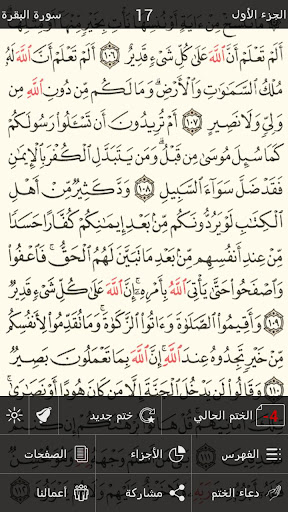 الجزء الأول 17 سورة البقرة
أَلَمْ تَعْلَمْ أَنَّ ٱللَّهَ عَلَىٰ كُلِّ شَىْءٍ قَدِيرٌ ١٠٦ أَلَمْ تَعْلَمْ أَنَّ ٱللَّهَ لَهُۥ
مُلْكُ ٱلسَّمَٰوَٰتِ وَٱلْأَرْضِ وَمَا لَكُم مِّن دُونِ ٱللَّهِ مِن
وَلِىٍّ وَلَا نَصِيرٍ ١٠٧ أَمْ تُرِيدُونَ أَن تَسْـَٔلُوا۟ رَسُولَكُمْ
كَمَا سُئِلَ مُوسَىٰ مِن قَبْلُ وَمَن يَتَبَدَّلِ ٱلْكُفْرَ بِٱلْإِيمَٰنِ
فَقَدْ ضَلَّ سَوَآءَ ٱلسَّبِيلِ ١٠٨ وَدَّ كَثِيرٌ مِّنْ أَهْلِ
ٱلْكِتَٰبِ لَوْ يَرُدُّونَكُم مِّنۢ بَعْدِ إِيمَٰنِكُمْ كُفَّارًا حَسَدًا
مِّنْ عِندِ أَنفُسِهِم مِّنۢ بَعْدِ مَا تَبَيَّنَ لَهُمُ ٱلْحَقُّ فَٱعْفُوا۟
وَٱصْفَحُوا۟ حَتَّىٰ يَأْتِىَ ٱللَّهُ بِأَمْرِهِۦٓ إِنَّ ٱللَّهَ عَلَىٰ كُلِّ شَىْءٍ قَدِيرٌ
١٠٩ وَأَقِيمُوا۟ ٱلصَّلَوٰةَ وَءَاتُوا۟ ٱلزَّكَوٰةَ وَمَا تُقَدِّمُوا۟ لِأَنفُسِكُم
مِّنْ خَيْرٍ تَجِدُوهُ عِندَ ٱللَّهِ إِنَّ ٱللَّهَ بِمَا تَعْمَلُونَ بَصِيرٌ
١١٠ وَقَالُوا۟ لَن يَدْخُلَ ٱلْجَنَّةَ إِلَّا مَن كَانَ هُودًا أَوْ نَصَٰرَىٰ
-4 الختم الحالي ختم جديد
الفهرس الأجزاء الصفحات
دعاء الختم مشاركة أعمالنا